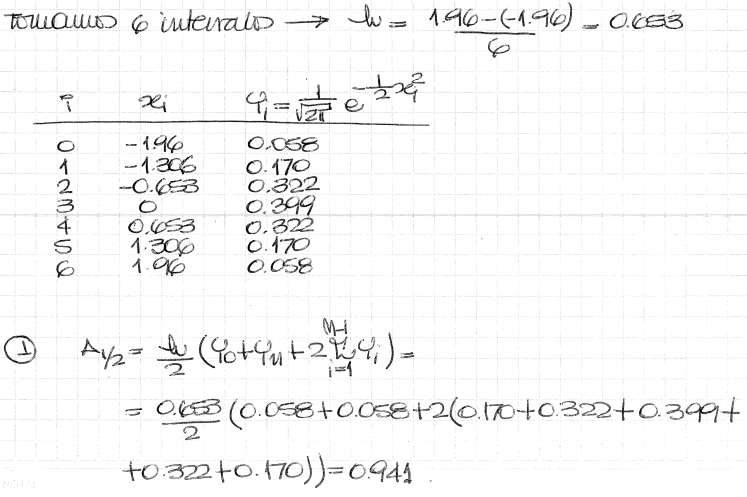 tomamos 6 intervalos → h = (1.96-(-1.96))/6 = 0.653
i xi φi = 1/√2π e^(-1/2 xi²)
0 -1.96 0.058
1 -1.306 0.170
2 -0.653 0.322
3 0 0.399
4 0.653 0.322
5 1.306 0.170
6 1.96 0.058
① A1/2 = h/2 (φ0+φn+2 Σ(i=1)^(n-1) φi) =
= 0.653/2 (0.058+0.058+2(0.170+0.322+0.399+
+0.322+0.170))=0.941.